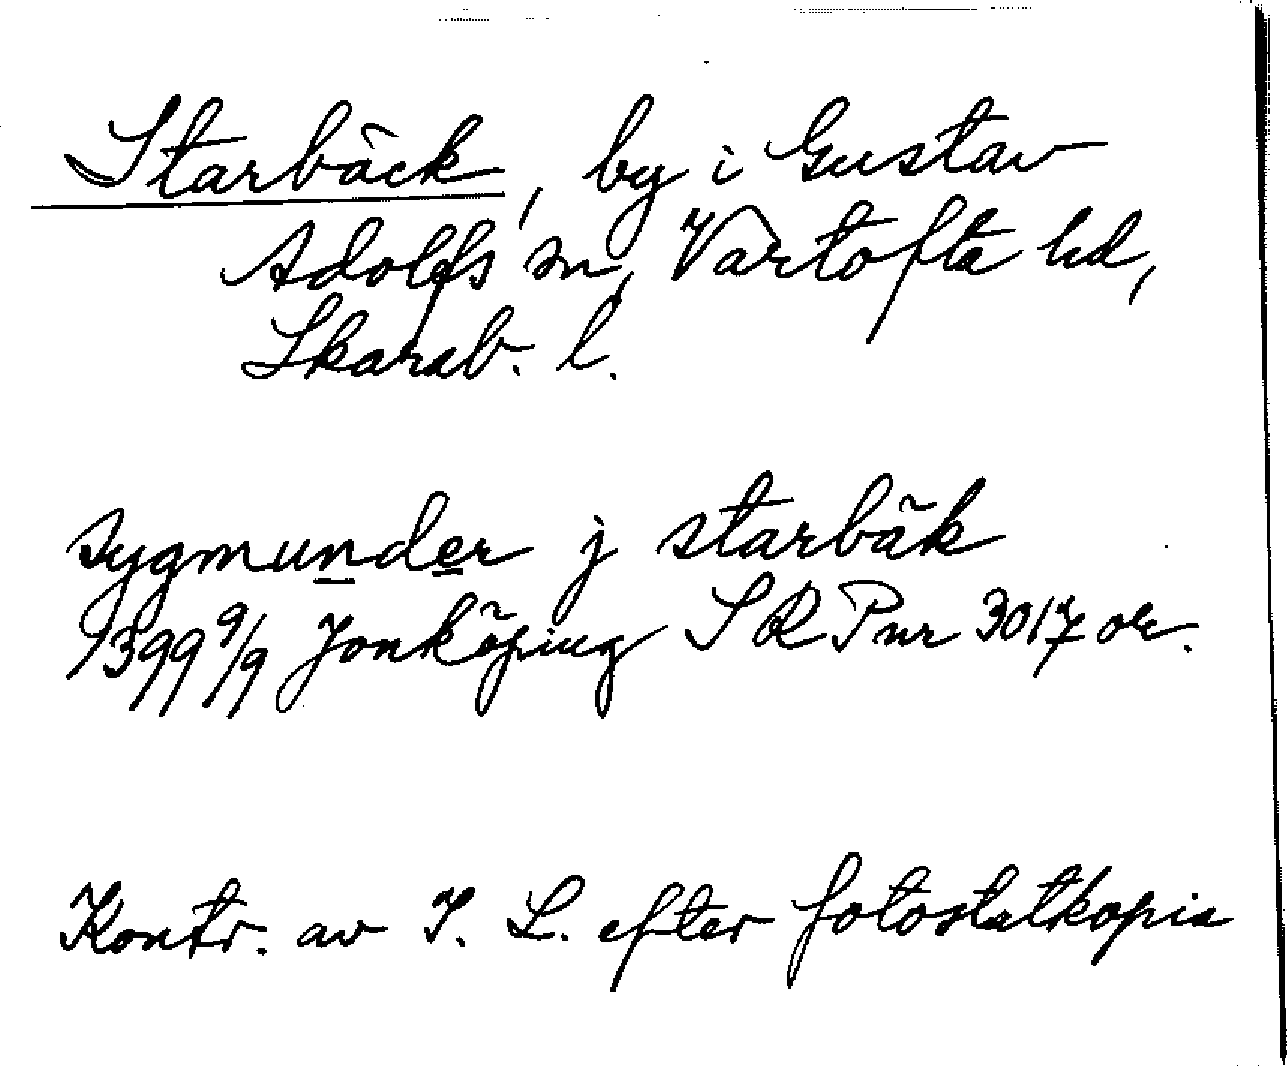 Starbäck, by i Gustav
Adolfs sn, Vartofta hd,
Skarab. l.
sygmunder j starbäk
1399 9/9 Jonköping SRP nr 3017 or.
Kontr. av I. L. efter fotostatkopia